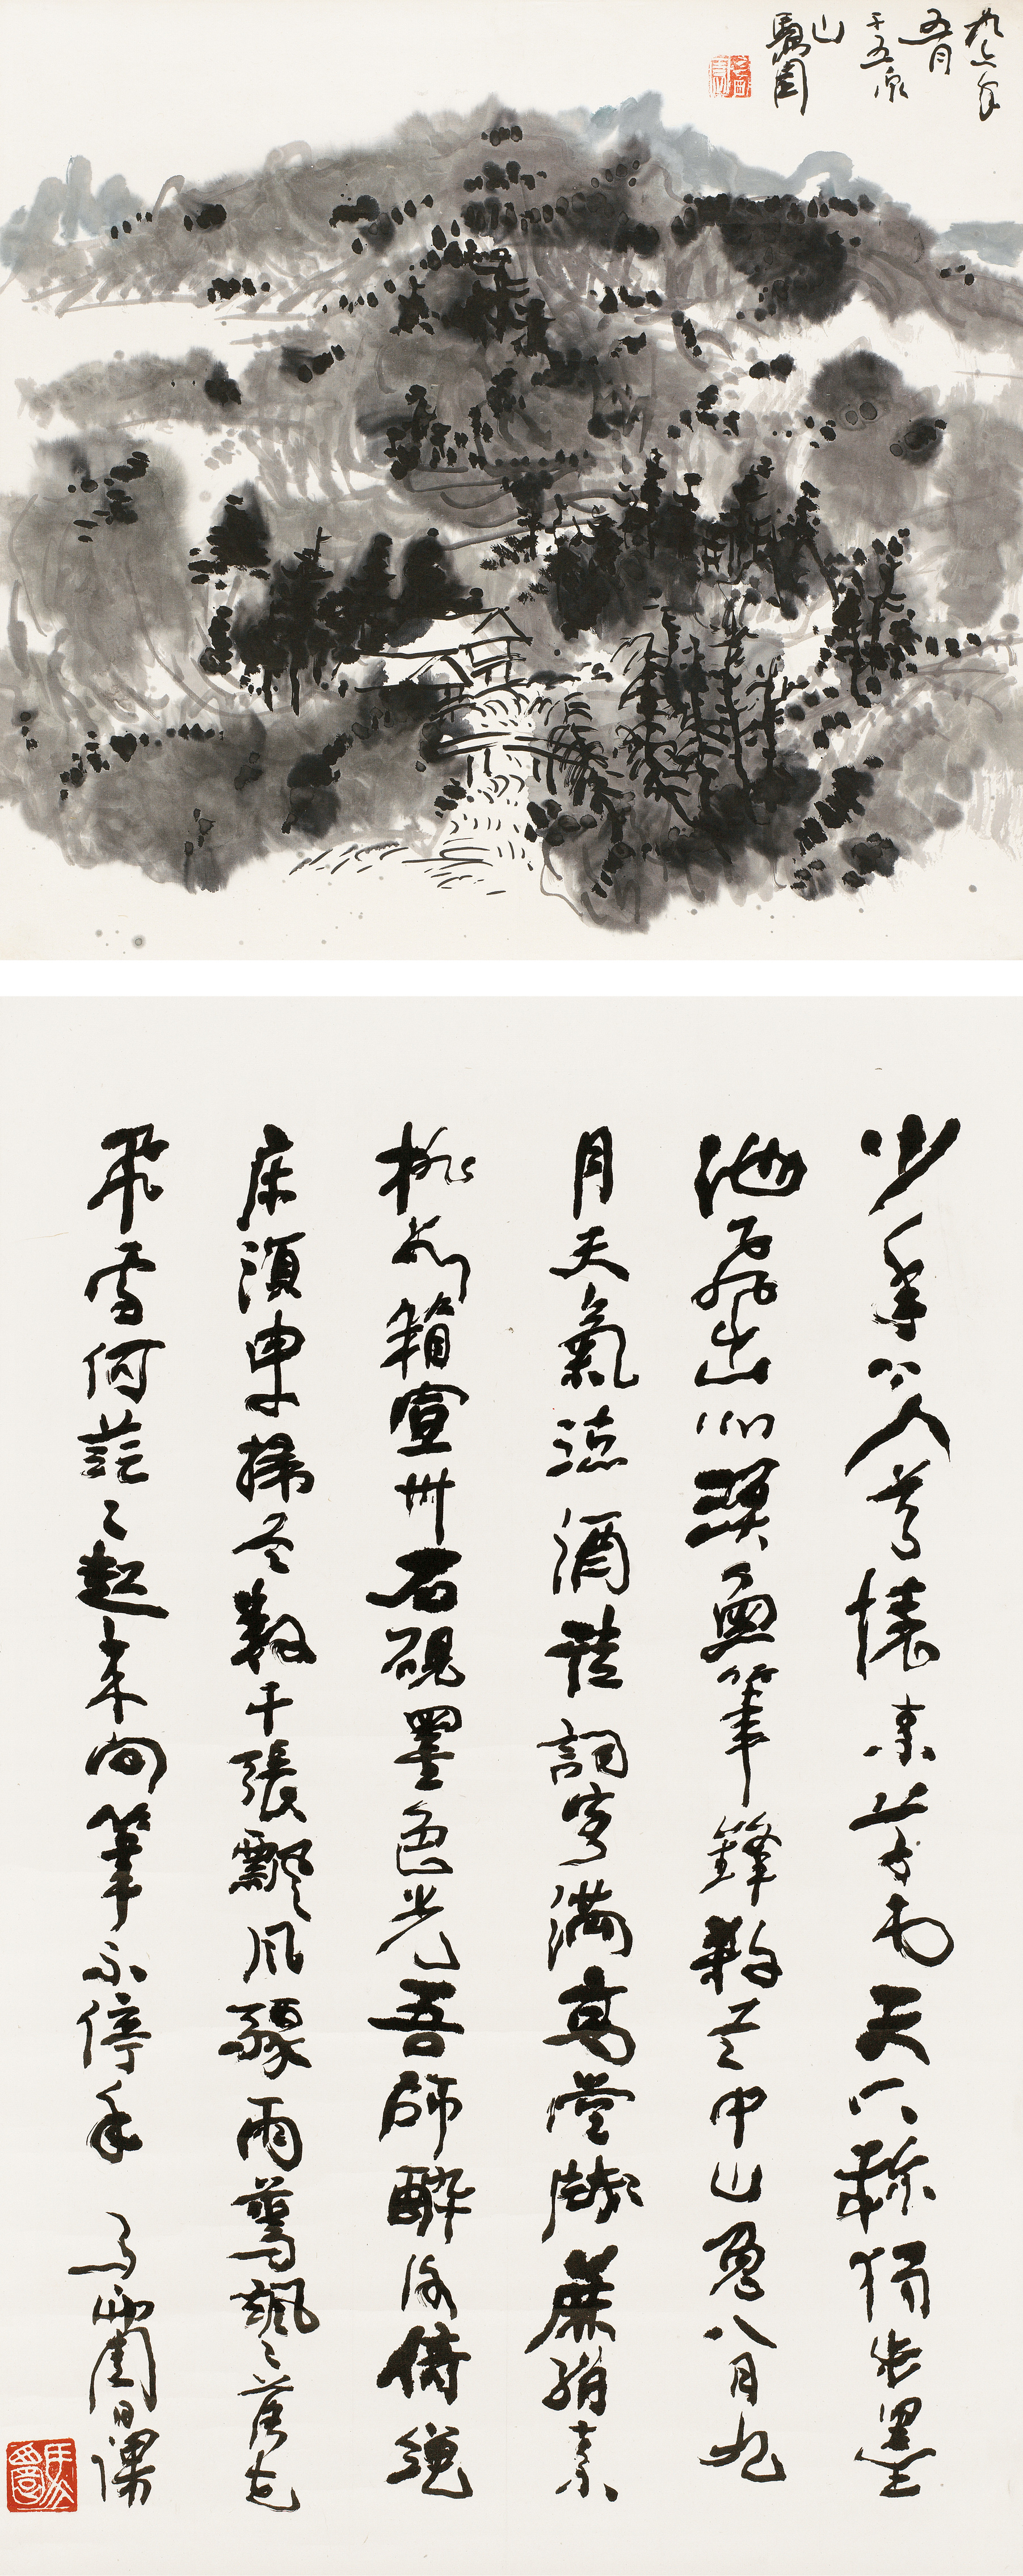 九六年
五月
于五泉
山
少年上人号懷素草書天下稱獨步墨
池飛出北溟魚筆鋒殺尽中山兔八月九
月天氣涼酒徒詞客滿高堂牋麻絹素
排數箱宣州石硯墨色光吾師醉後倚繩
床須臾掃尽數千張飄風驟雨驚颯々落花
飛雪何茫々起來向筆不停手 馬 園日課